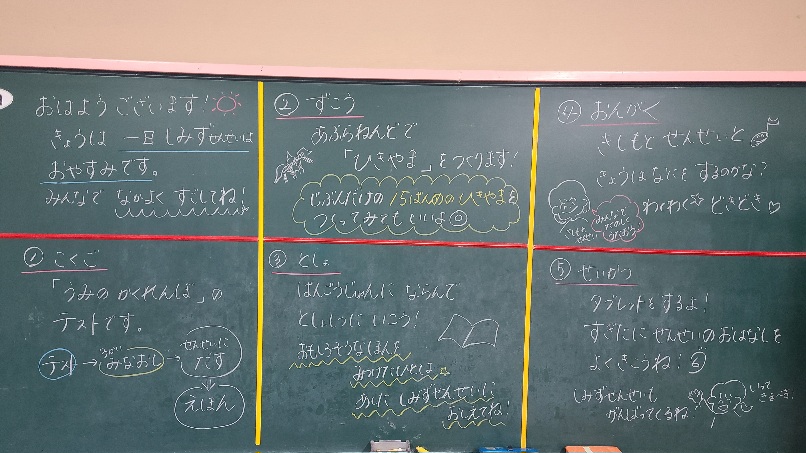 おはようございます！
きょうは 一日 しみずせんせいは
おやすみです。
みんなで なかよく すごしてね！
① こくご
「うみの かくれんぼ」の
テストです。
テスト→みなおし→せんせいに だす
→えほん
② ずこう
あぶらねんどで
「ひきやま」をつくります！
じぶんだけの 15ばんめの ひきやまを
つくってみても いいよ
③ としょ
はんごうじゅんに ならんで
としょしつに いこう！
おもしろそうなほんを
みつけたひとは
あした しみずせんせいに
おしえてね！
④ おんがく
きしもと せんせいと
きょうは なにを するのかな？
わくわく どきどき
⑤ せいかつ
タブレットをするよ！
すぎたに せんせいの おはなしを
よく きこうね！
しみずせんせいも
がんばってくるね